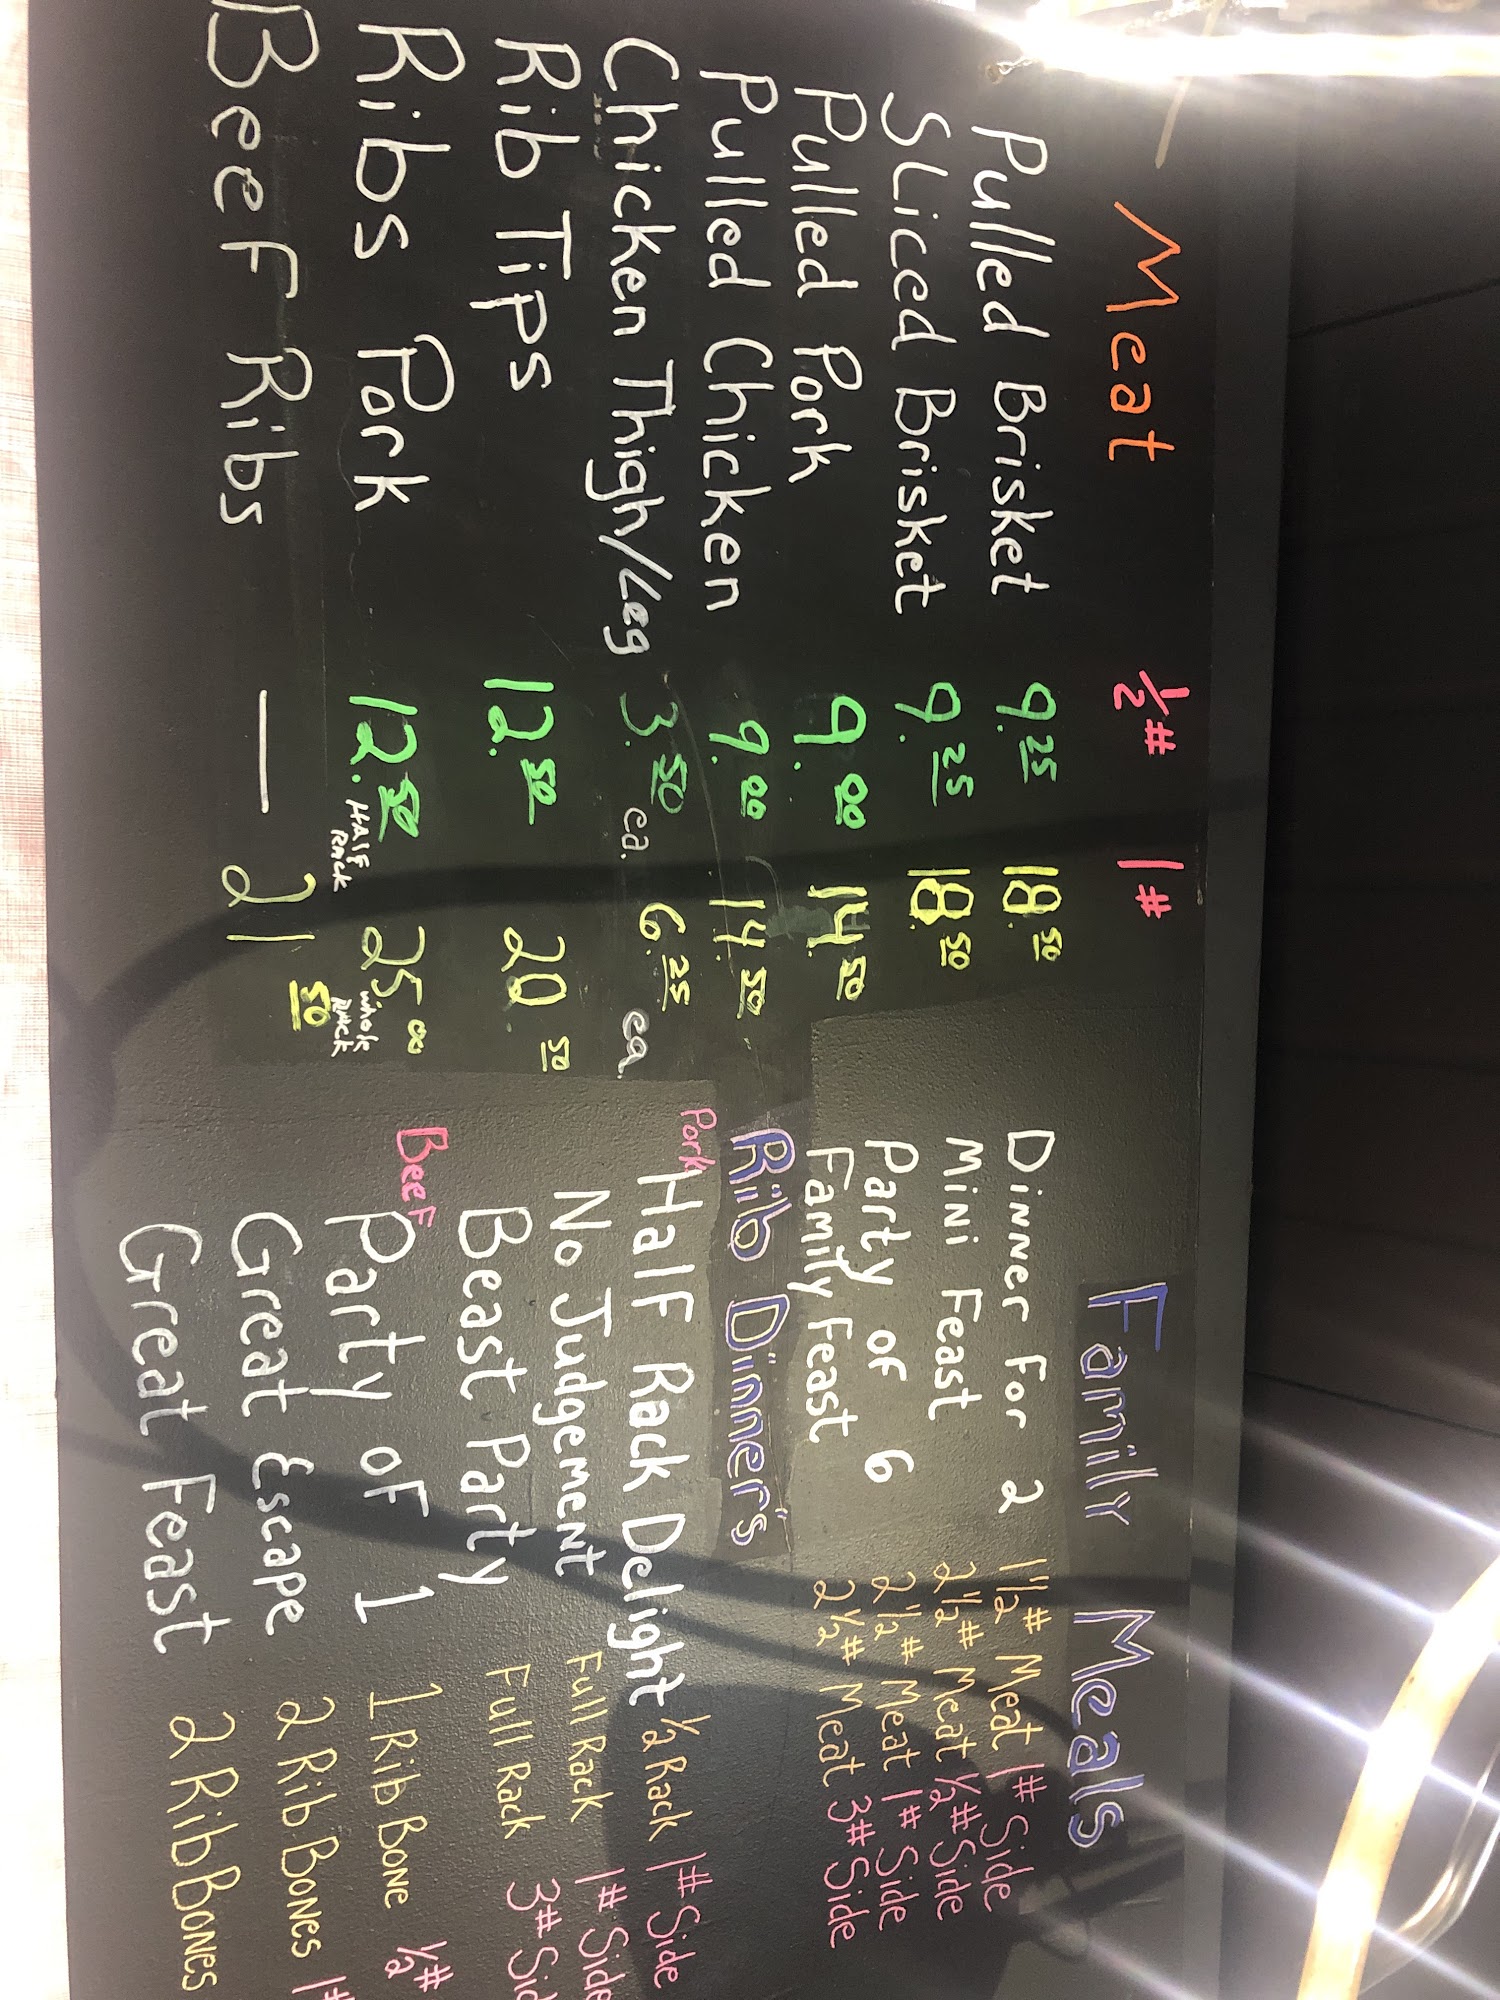 Meat ½# 1#
Pulled Brisket 9.25 18.50
Sliced Brisket 9.25 18.50
Pulled Pork 9.00 14.50
Pulled Chicken 9.00 14.50
Chicken Thigh/Leg 3.50 ea. 6.25 ea.
Rib Tips 12.50 20.50
Ribs Pork 12.50 Half Rack 25.00 Whole Rack
Beef Ribs — 21.50
Family Meals
Dinner For 2 1½# Meat 1# Side
Mini Feast 2½# Meat ½# Side
Party of 6 2½# Meat 1# Side
Family Feast 2½# Meat 3# Side
Rib Dinners
Pork
Half Rack Delight ½ Rack 1# Side
No Judgement Full Rack 1# Side
Beast Party Full Rack 3# Sid
Beef
Party of 1 1 Rib Bone ½#
Great Escape 2 Rib Bones 1#
Great Feast 2 Rib Bones